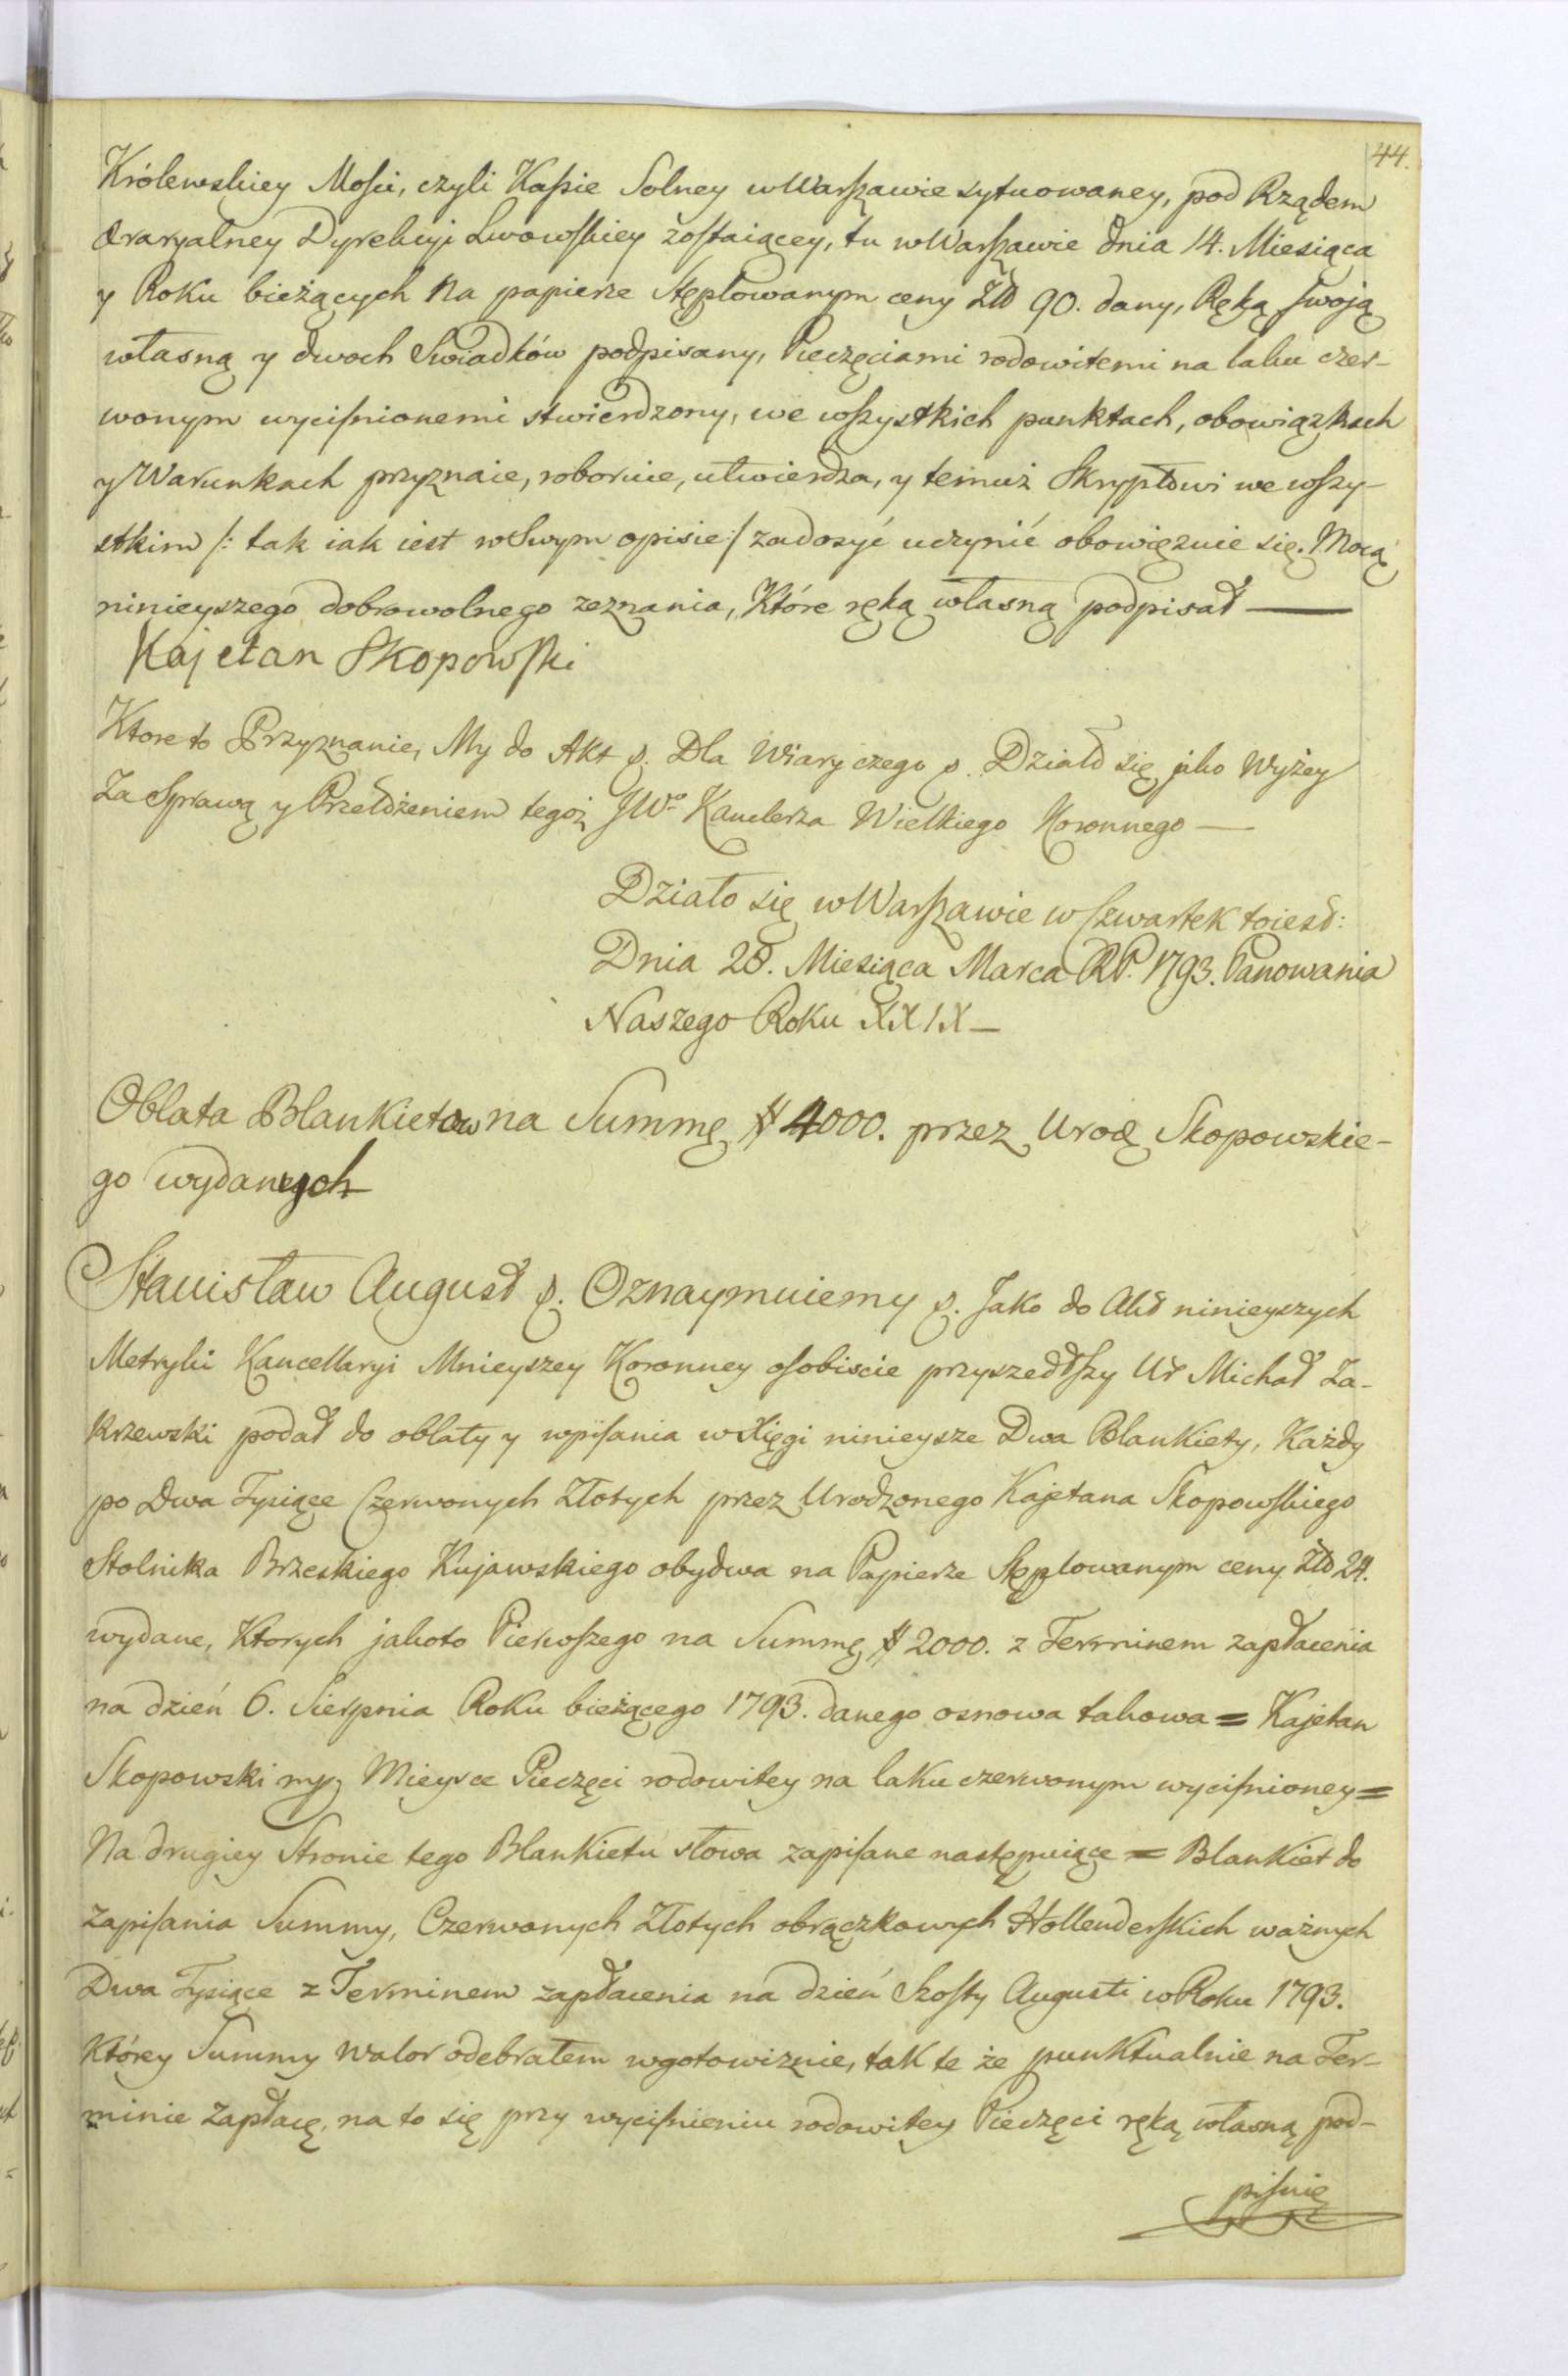 44.
Królewskiey Mości, czyli Kassie Solney w Warszawie sytuowaney, pod Rządem
Œraryalney Dyrekcyi Lwowskiey zostaiącey, tu w Warszawie dnia 14. Miesiąca
y Roku bieżących na papierze stęplowanym ceny Złł 90. dany, Ręką swoją
własną y dwoch Swiadków podpisany, Pieczęciami rodowitemi na laku czer-
wonym wycisnionemi stwierdzony, we wszystkich punktach, obowiązkach
y Warunkach przyznaie, roboruie, utwierdza, y temuż Skryptowi we wszy-
stkim /: tak iak iest w Swym opisie :/ zadosyć uczynić obowięzuie się. Mocą
ninieyszego dobrowolnego zeznania, Które ręką własną podpisał —
Kajetan Skopowski
Ktore to Przyznanie, My do Akt p. Dla Wiary czego p. Działo się jako Wyżey
Za Sprawą y Przełożeniem tegoż JWo Kanclerza Wielkiego Koronnego —
Działo się w Warszawie w Czwartek toiest:
Dnia 28. Miesiąca Marca RP. 1793. Panowania
Naszego Roku XXIX —
Oblata Blankietow na Summę # 4000. przez Urod Skopowskie-
go wydanych
Stanisław August p. Oznaymuiemy p. Jako do Akt ninieyszych
Metryki Kancellaryi Mnieyszey Koronney osobiscie przyszedłszy Ur Michał Za-
krzewski podał do oblaty y wpisania w Xięgi ninieysze Dwa Blankiety, Każdy
po Dwa Tysiące Czerwonych Złotych przez Urodzonego Kajetana Skopowskiego
Stolnika Brzeskiego Kujawskiego obydwa na Papierze Stęplowanym ceny Złł 24.
wydane, Ktorych jakoto Pierwszego na Summę # 2000. z Terminem zapłacenia
na dzień 6. Sierpnia Roku bieżącego 1793. danego osnowa takowa = Kajetan
Skopowski mp. Mieysce Pieczęci rodowitey na laku czerwonym wycisnioney =
Na drugiey Stronie tego Blankietu słowa zapisane następuiące = Blankiet do
zapisania Summy, Czerwonych Złotych obrączkowych Hollenderskich ważnych
Dwa Tysiące z Terminem zapłacenia na dzień Szosty Augusti w Roku 1793.
Którey Summy walor odebrałem w gotowiznie, tak te że punktualnie na Ter-
minie zapłacę, na to się przy wycisnieniu rodowitey Pieczęci ręką własną pod-
pisuię